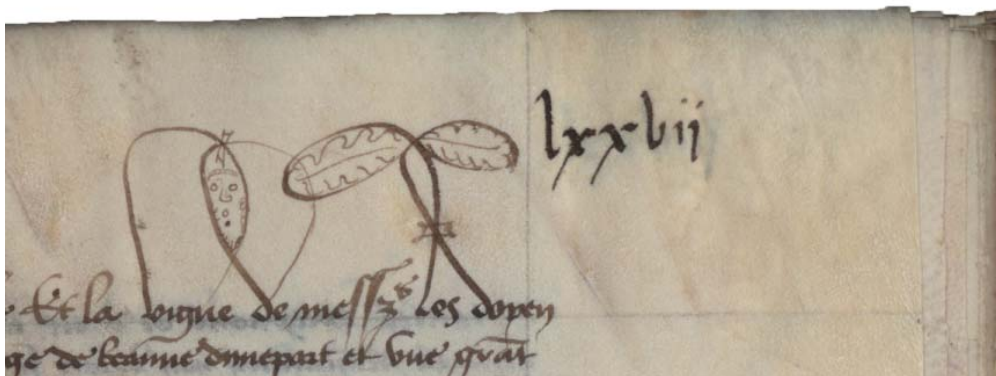 lxxvii
Et la vigne de mess les doyen
ge de beaune dunepart et vne grat